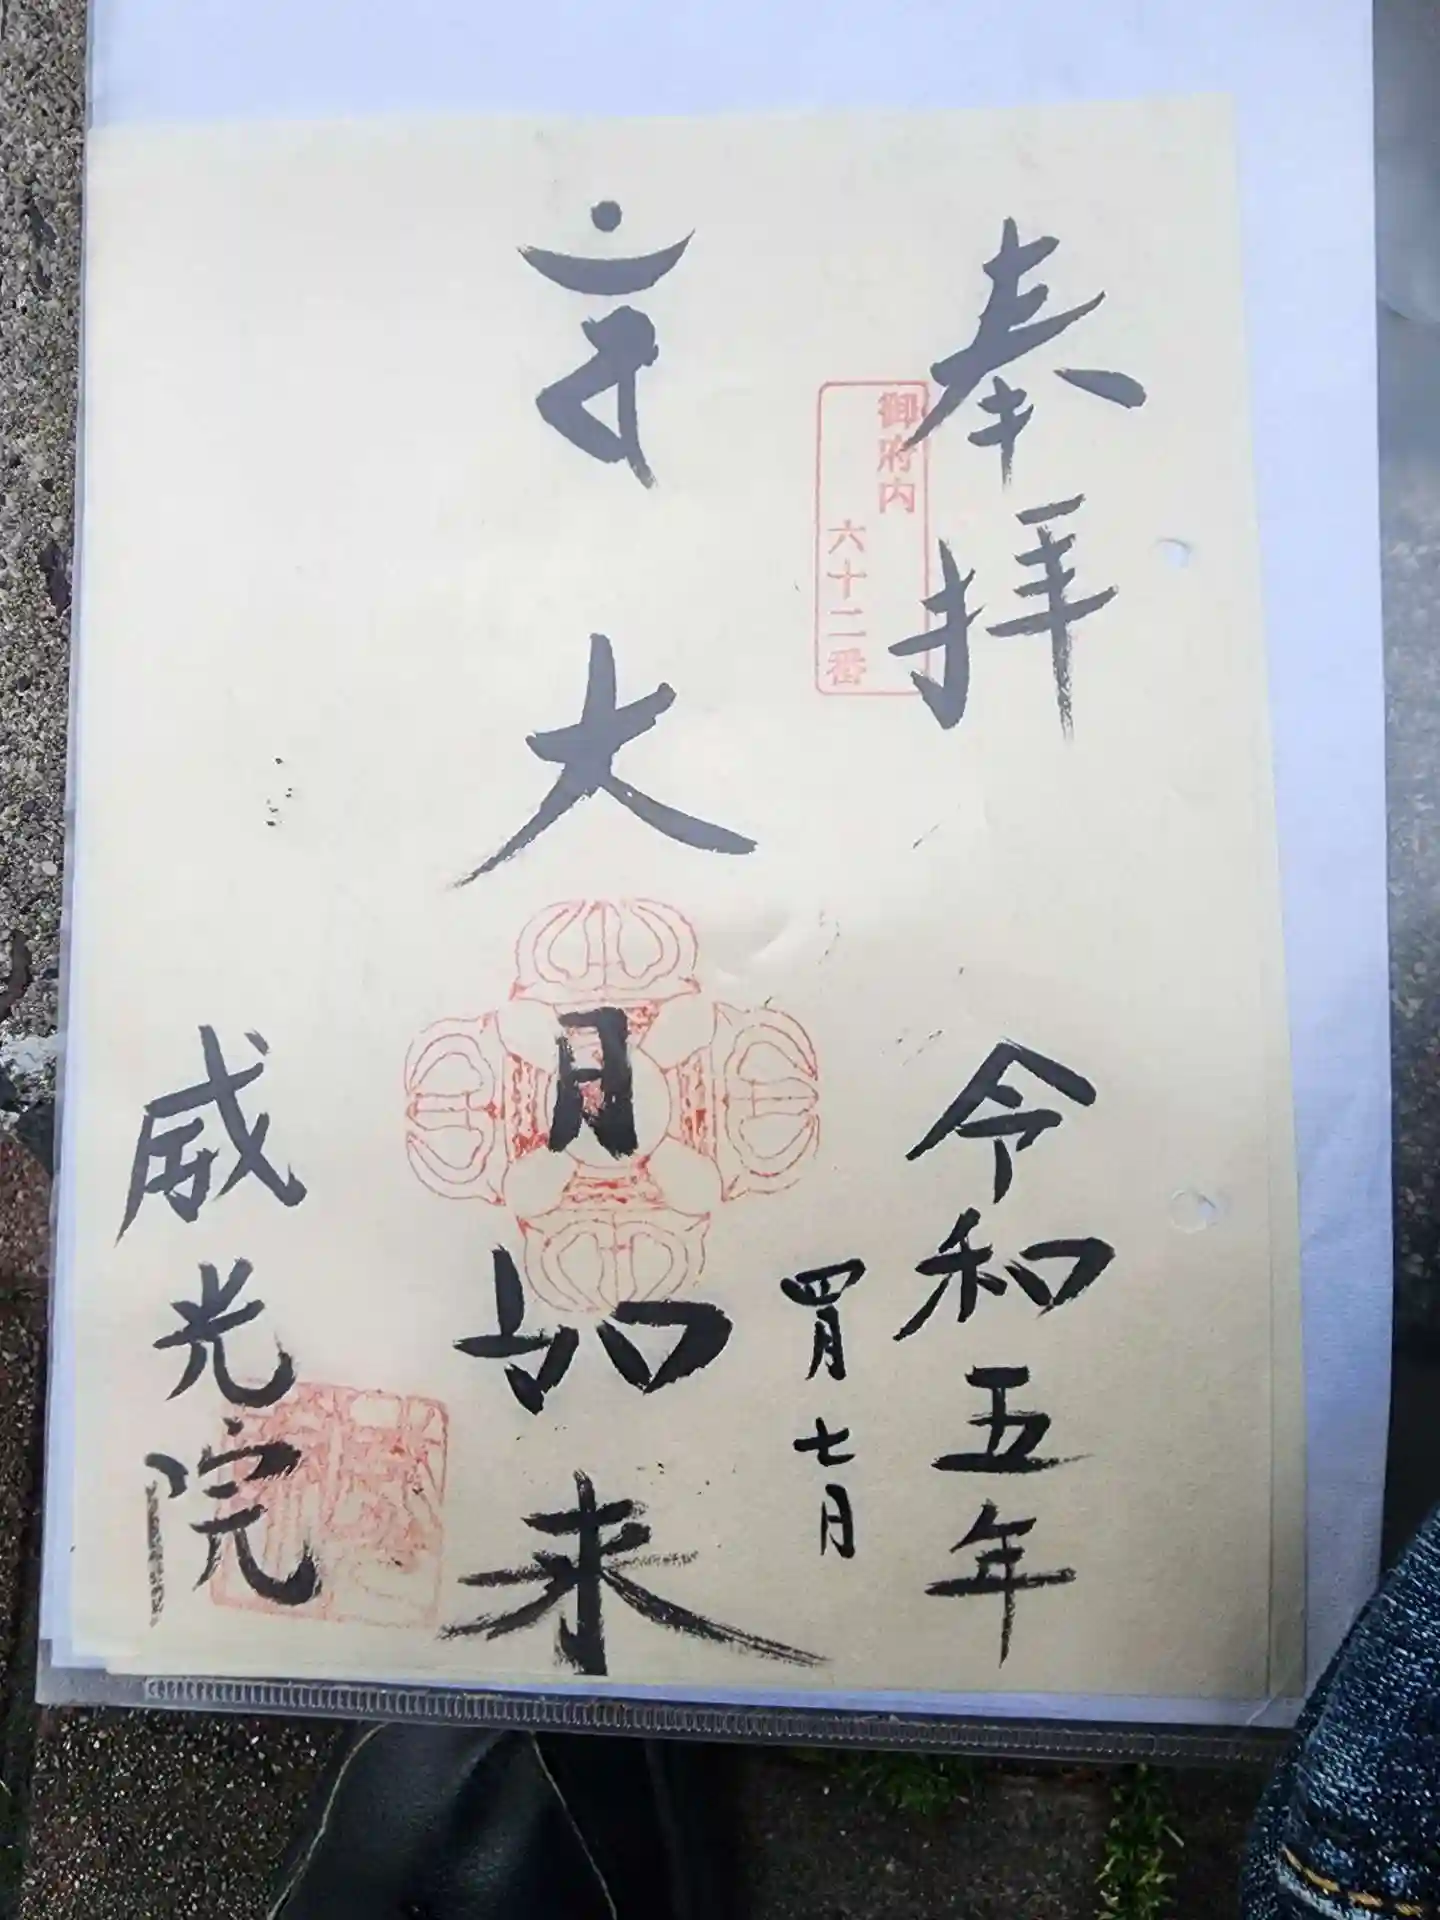 奉拝
令和五年
御府内
六十二番
四月七日
大日如来
威光院